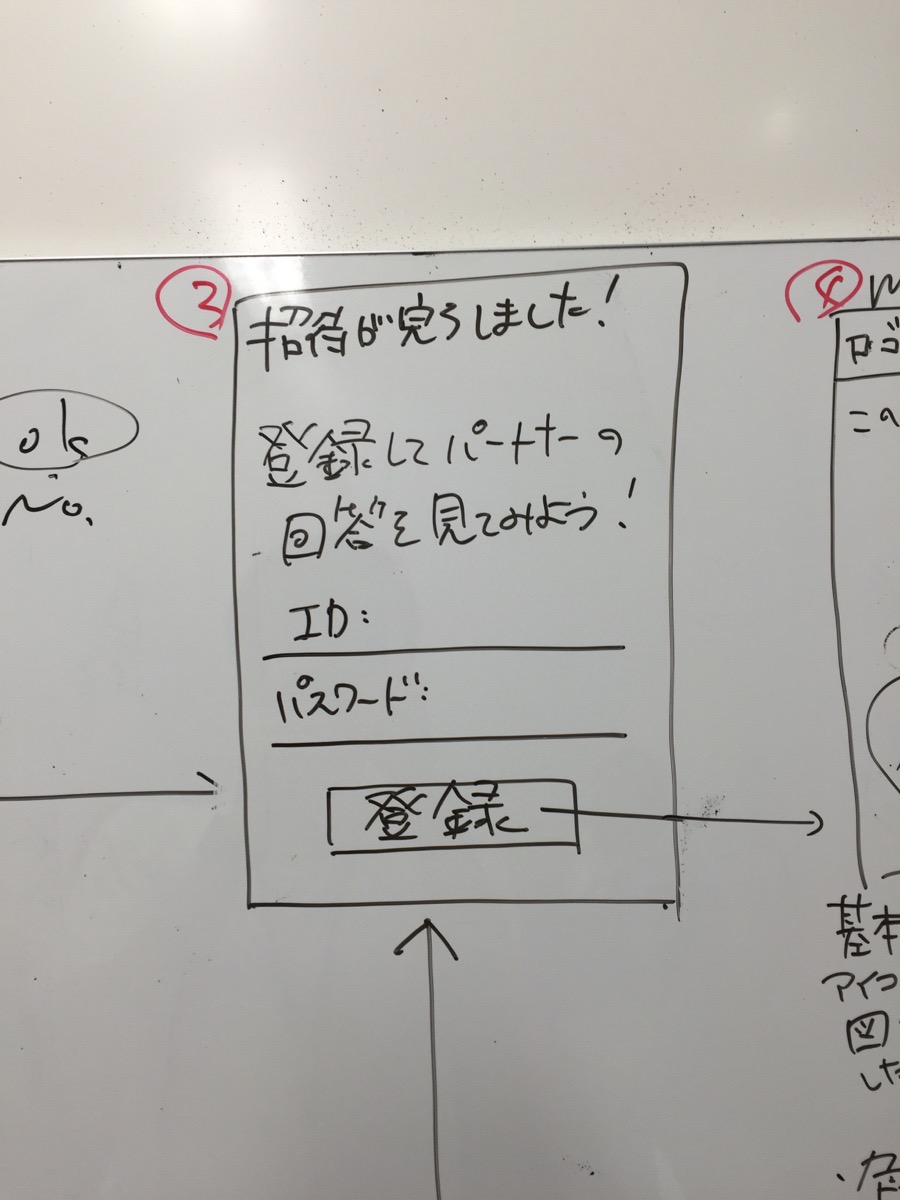 ③
招待が完了しました!
登録してパートナーの
回答を見てみよう!
ID:
パスワード:
登録
ok
No.
④
ロゴ
この
基本
アイコ
図
した